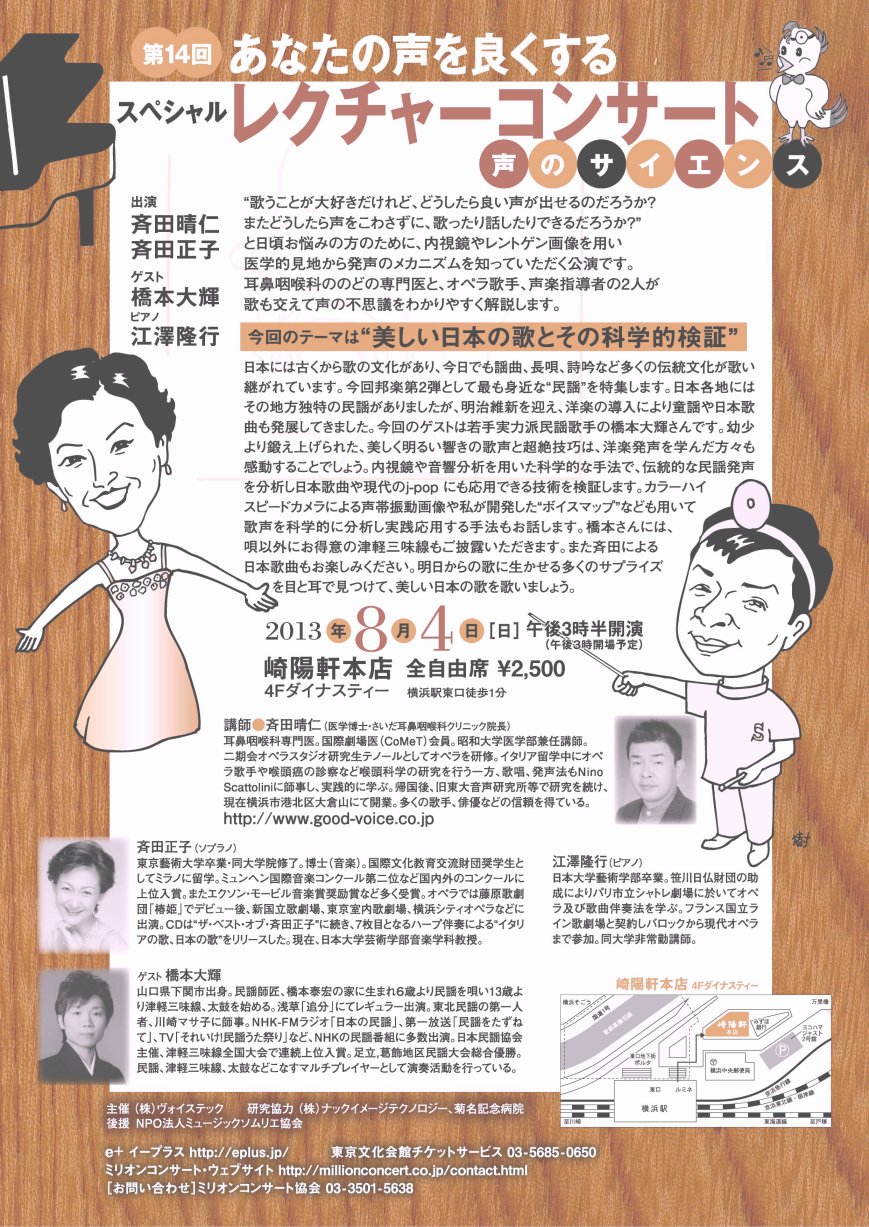 第14回 あなたの声を良くする
スペシャル レクチャーコンサート
声のサイエンス
出演
斉田晴仁
斉田正子
ゲスト
橋本大輝
ピアノ
江澤隆行
“歌うことが大好きだけれど、どうしたら良い声が出せるのだろうか?
またどうしたら声をこわさずに、歌ったり話したりできるだろうか?”
と日頃お悩みの方のために、内視鏡やレントゲン画像を用い
医学的見地から発声のメカニズムを知っていただく公演です。
耳鼻咽喉科ののどの専門医と、オペラ歌手、声楽指導者の2人が
歌も交えて声の不思議をわかりやすく解説します。
今回のテーマは“美しい日本の歌とその科学的検証”
日本には古くから歌の文化があり、今日でも謡曲、長唄、詩吟など多くの伝統文化が歌い
継がれています。今回邦楽第2弾として最も身近な“民謡”を特集します。日本各地には
その地方独特の民謡がありましたが、明治維新を迎え、洋楽の導入により童謡や日本歌
曲も発展してきました。今回のゲストは若手実力派民謡歌手の橋本大輝さんです。幼少
より鍛え上げられた、美しく明るい響きの歌声と超絶技巧は、洋楽発声を学んだ方々も
感動することでしょう。内視鏡や音響分析を用いた科学的な手法で、伝統的な民謡発声
を分析し日本歌曲や現代のj-pop にも応用できる技術を検証します。カラーハイ
スピードカメラによる声帯振動画像や私が開発した“ボイスマップ”なども用いて
歌声を科学的に分析し実践応用する手法もお話します。橋本さんには、
唄以外にお得意の津軽三味線もご披露いただきます。また斉田による
日本歌曲もお楽しみください。明日からの歌に生かせる多くのサプライズ
を目と耳で見つけて、美しい日本の歌を歌いましょう。
2013年8月4日[日] 午後3時半開演
(午後3時開場予定)
崎陽軒本店 全自由席 ¥2,500
4Fダイナスティー 横浜駅東口徒歩1分
講師●斉田晴仁(医学博士・さいだ耳鼻咽喉科クリニック院長)
耳鼻咽喉科専門医。国際劇場医(CoMeT)会員。昭和大学医学部兼任講師。
二期会オペラスタジオ研究生テノールとしてオペラを研修。イタリア留学中にオペ
ラ歌手や喉頭癌の診察など喉頭科学の研究を行う一方、歌唱、発声法もNino
Scattoliniに師事し、実践的に学ぶ。帰国後、旧東大音声研究所等で研究を続け、
現在横浜市港北区大倉山にて開業。多くの歌手、俳優などの信頼を得ている。
http://www.good-voice.co.jp
斉田正子(ソプラノ)
東京藝術大学卒業・同大学院修了。博士(音楽)。国際文化教育交流財団奨学生と
してミラノに留学。ミュンヘン国際音楽コンクール第二位など国内外のコンクールに
上位入賞。またエクソン・モービル音楽賞奨励賞など多く受賞。オペラでは藤原歌劇
団「椿姫」でデビュー後、新国立歌劇場、東京室内歌劇場、横浜シティオペラなどに
出演。CDは“ザ・ベスト・オブ・斉田正子”に続き、7枚目となるハープ伴奏による“イタリ
アの歌、日本の歌”をリリースした。現在、日本大学芸術学部音楽学科教授。
江澤隆行(ピアノ)
日本大学芸術学部卒業。笹川日仏財団の助
成によりパリ市立シャトレ劇場に於いてオペ
ラ及び歌曲伴奏法を学ぶ。フランス国立ラ
イン歌劇場と契約しバロックから現代オペラ
まで参加。同大学非常勤講師。
ゲスト 橋本大輝
山口県下関市出身。民謡師匠、橋本泰宏の家に生まれ6歳より民謡を唄い13歳よ
り津軽三味線、太鼓を始める。浅草「追分」にてレギュラー出演。東北民謡の第一人
者、川崎マサ子に師事。NHK-FMラジオ「日本の民謡」、第一放送「民謡をたずね
て」、TV「それいけ!民謡うた祭り」など、NHKの民謡番組に多数出演。日本民謡協会
主催、津軽三味線全国大会で連続上位入賞。足立,葛飾地区民謡大会総合優勝。
民謡、津軽三味線、太鼓などこなすマルチプレイヤーとして演奏活動を行っている。
崎陽軒本店 4Fダイナスティー
横浜そごう
国道1号
首都高横羽線
万里橋
崎陽軒
本店
みずほ
銀行
ヨコハマ
ジャスト
2号館
P
東口地下街
ポルタ
横浜中央郵便局
東口
ルミネ
横浜駅
京浜急行線
京浜東北線・根岸線
至川崎
東海道線
至戸塚
主催 (株)ヴォイステック 研究協力 (株)ナックイメージテクノロジー、菊名記念病院
後援 NPO法人ミュージックソムリエ協会
e+ イープラス http://eplus.jp/ 東京文化会館チケットサービス 03-5685-0650
ミリオンコンサート・ウェブサイト http://millionconcert.co.jp/contact.html
[お問い合わせ]ミリオンコンサート協会 03-3501-5638
S